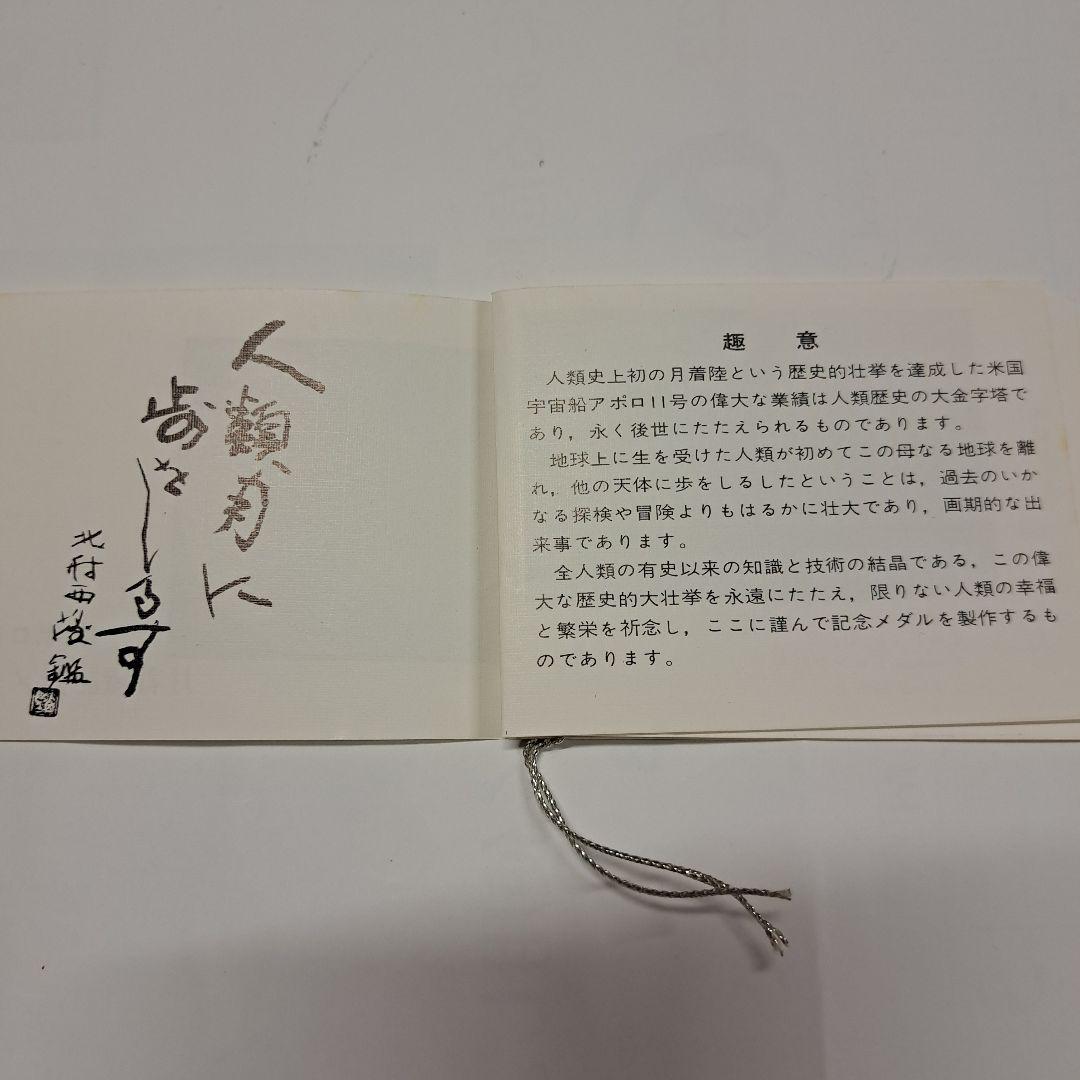 人類月に
歩をしるす
北村西望鑑
趣 意
人類史上初の月着陸という歴史的壮挙を達成した米国
宇宙船アポロ11号の偉大な業績は人類歴史の大金字塔で
あり，永く後世にたたえられるものであります。
地球上に生を受けた人類が初めてこの母なる地球を離
れ，他の天体に歩をしるしたということは，過去のいか
なる探検や冒険よりもはるかに壮大であり，画期的な出
来事であります。
全人類の有史以来の知識と技術の結晶である，この偉
大な歴史的大壮挙を永遠にたたえ，限りない人類の幸福
と繁栄を祈念し，ここに謹んで記念メダルを製作するも
のであります。